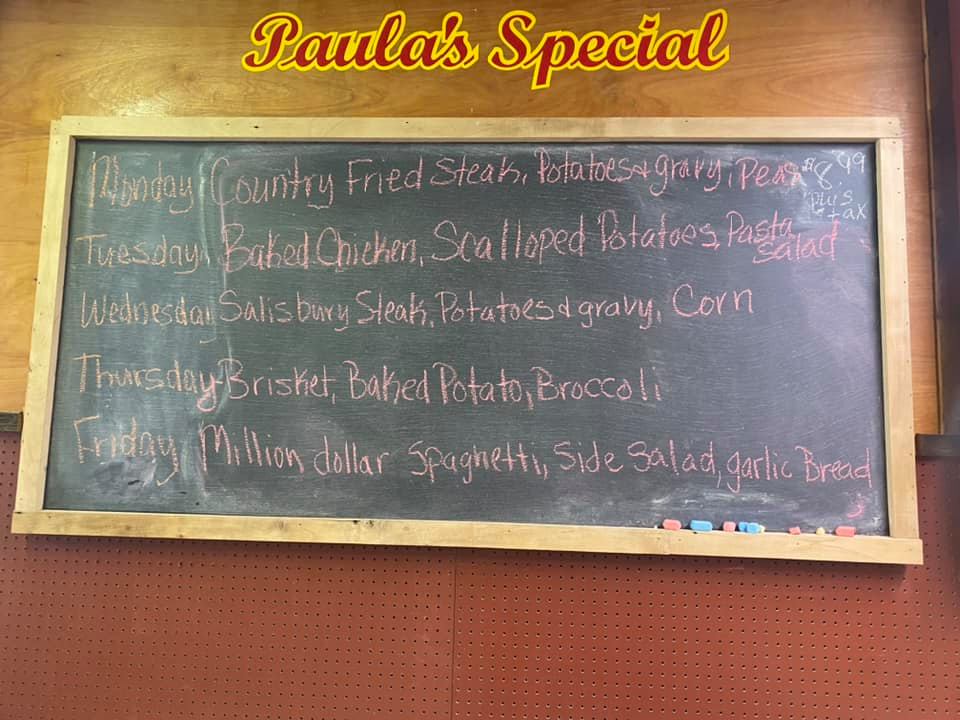 Paula's Special
Monday Country Fried Steak, Potatoes & gravy, Peas $8.99
plus
tax
Tuesday Baked Chicken, Scalloped Potatoes, Pasta
Salad
Wednesday Salisbury Steak, Potatoes & gravy, Corn
Thursday Brisket, Baked Potato, Broccoli
Friday Million dollar Spaghetti, Side Salad, garlic Bread